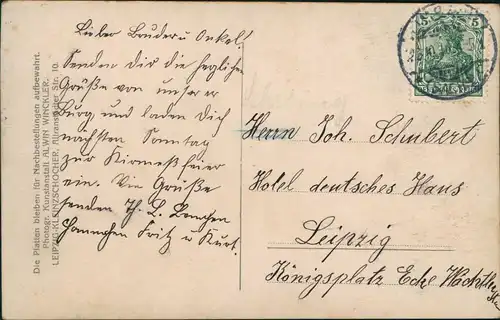 Lieber Bruder u Onkel!
Senden Dir die herzlichen
Grüße von unsrer
Burg, und laden Dich
nächsten Sonntag
zur Kirmeß feier
ein. Viele Grüße
senden Th. L. Lenchen
Hannchen Fritz u Kurt.
Herrn Joh. Schubert
Hotel deutsches Haus
Leipzig
Königsplatz Ecke
Die Platten bleiben für Nachbestellungen aufbewahrt.
Photogr. Kunstanstalt ALWIN WINCKLER,
LEIPZIG-KLEINZSCHOCHER, Altranstädter Str. 10.
5 5